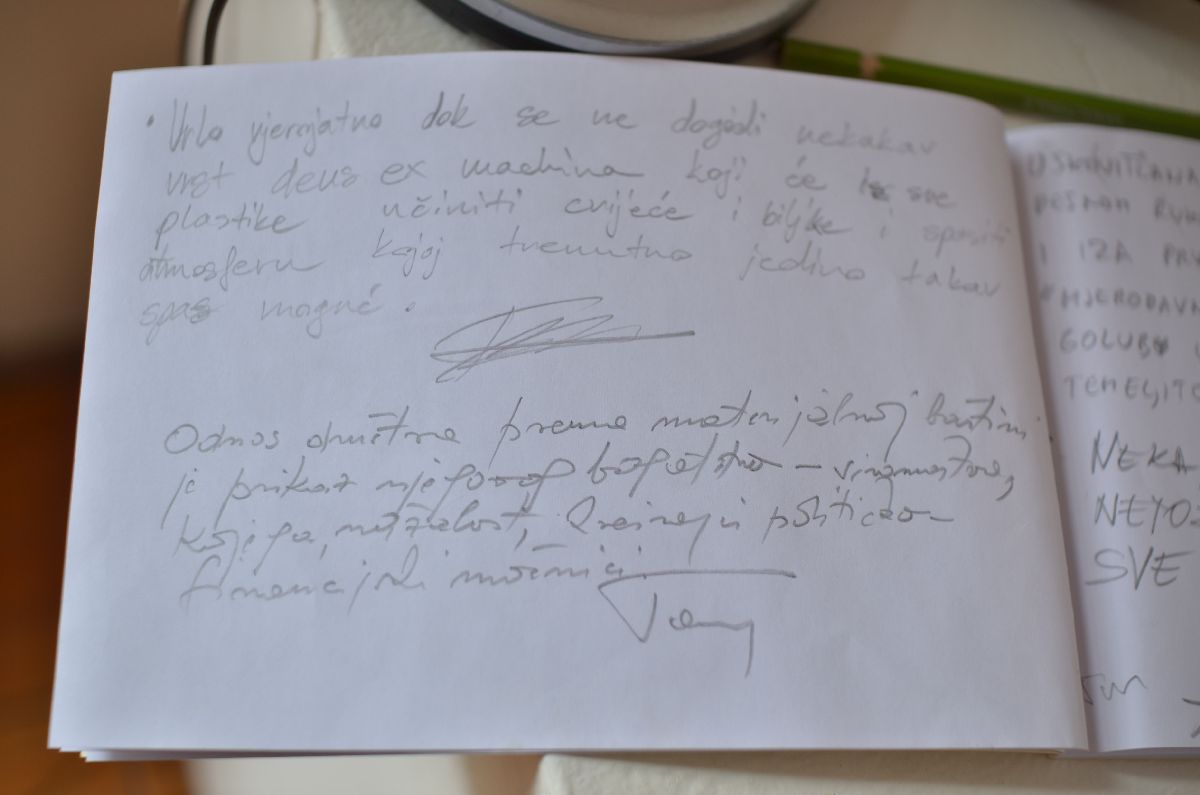 • Vrlo vjerojatno dok se ne dogodi nekakav
vrst deus ex machina koji će iz sve
plastike učiniti cvijeće i biljke i spasiti
atmosferu kojoj trenutno jedino takav
spas moguć.
Odnos društva prema materijalnoj baštini
je prikaz njegovog bogatstva –
kojega, nažalost, kreiraju politično
financijski moćnici.
USMJTIČANA
PESMAM RUK
I IZA PRV
MJERODAVN
GOLUBOV
TEMELJITO
NEKA
NETO
SVE